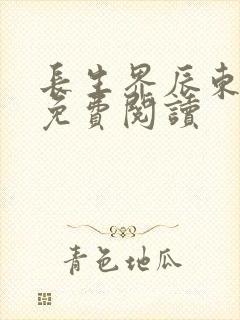 長生界辰東
免費閱讀
青色地瓜